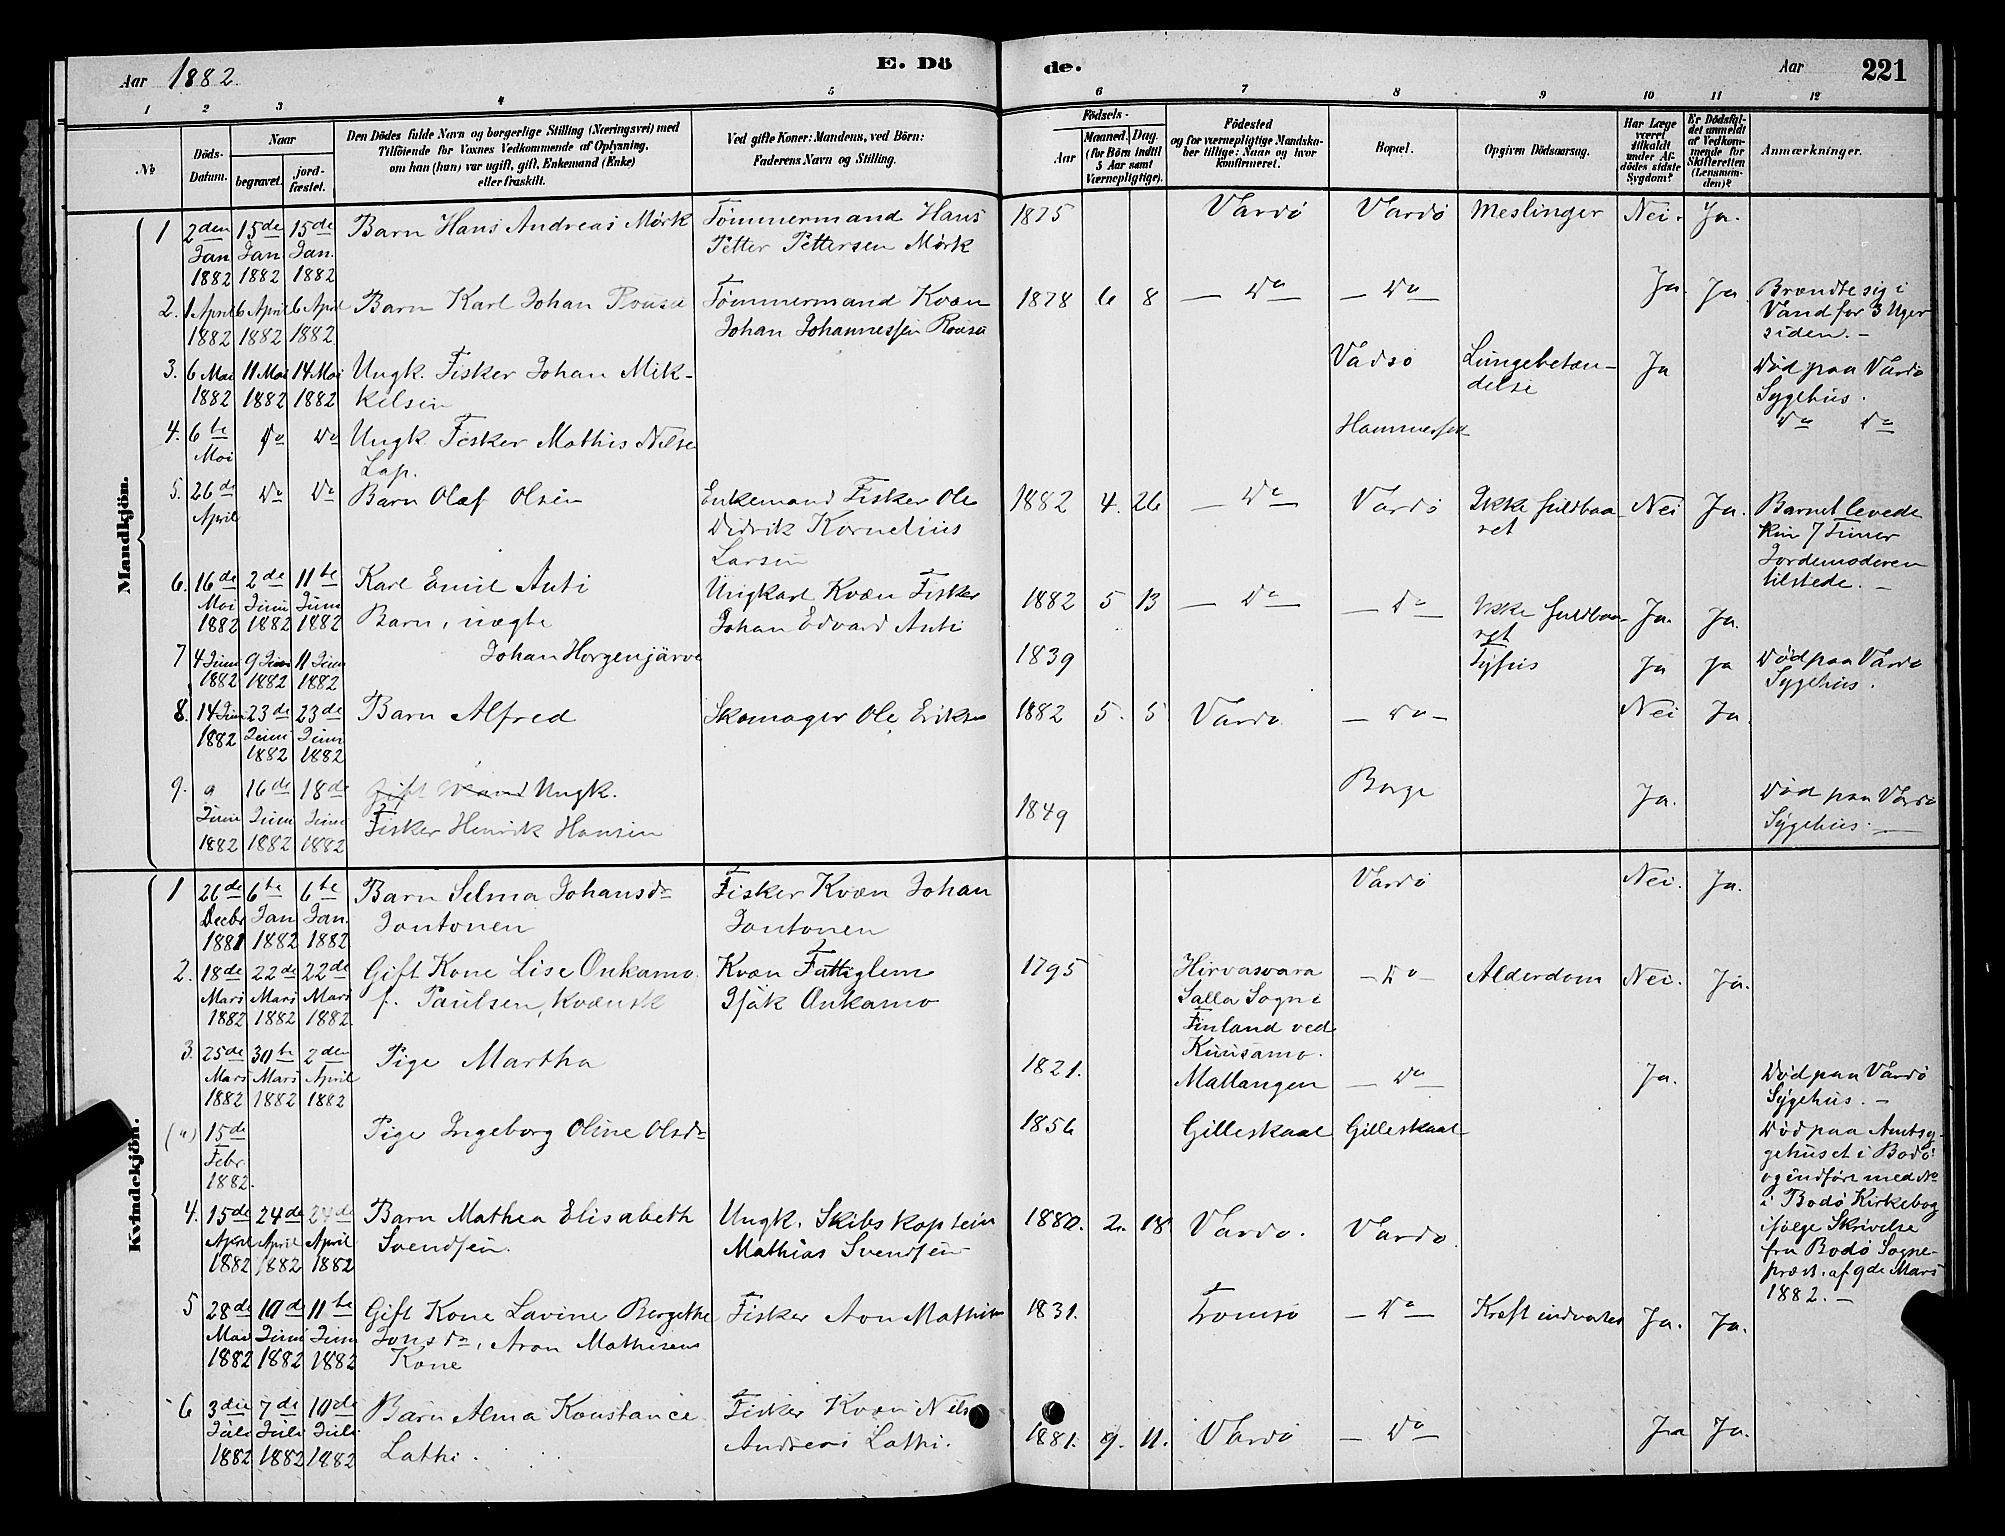 Aar 1882
E. Dö
de.
Aar
221
1 2 3 4 5 6 7 8 9 10 11 12
№
Döds-
Datum.
Naar
begravet.
jord-
fæstet.
Den Dödes fulde Navn og borgerlige Stilling (Næringsvei) med
Tilföiende for Voxnes Vedkommende af Oplysning,
om han (hun) var ugift, gift, Enkemand (Enke)
eller fraskilt.
Ved gifte Koner: Mandens, ved Börn:
Faderens Navn og Stilling.
Födsels-
Aar
Maaned.
Dag.
(for Börn indtil
5 Aar samt
Værnepligtige).
Födested
og for værnepligtige Mandska-
ber tillige: Naar og hvor
konfirmeret.
Bopæl.
Opgiven Dödsaarsag.
Har Læge
været
tilkaldt
under Af-
dödes sidste
Sygdom?
Er Dödsfal-
det anmeldt
af Vedkom-
mende for
Skifteretten
(Lensman-
den)?
Anmærkninger.
Mandkjön.
1 2den Jan 1882 15de Jan 1882 15de Jan. 1882 Barn Hans Andreas Mörk
Tømmermand Hans
Petter Pettersen Mörk
1875 Vardö Vardö Meslinger Nei. Ja.
2. 1 April 1882 6 April 1882 6 April 1882. Barn Karl Johan Rousu
Tømmermand Kvæn
Johan Johannessen Rousu
1878 6 8 — Do — — Do — Ja. Ja.
Brændte sig i
Vand for 3 Uger
siden. —
3. 6 Mai 1882 11 Mai 1882 14 Mai 1882 Ungk. Fisker Johan Mik-
kelsen
Vadsö Lungebetæn-
delse Ja
Død paa Vardö
Sygehus.
4. 6te Mai Do Do Ungk. Fisker Mathis Nilsen
Lap.
Hammerfest
Do Do
5. 26de April Do Do Barn Olaf Olsen
Enkemand Fisker Ole
Didrik Kornelius
Larsen
1882 4. 26 — Do — Vardö Ikke fuldbaa-
ret Nei Ja.
Barnet levede
kun 7 Timer
Jordemoderen
tilstede. —
6. 16de Mai 1882 2de Juni 1882 11te Juni 1882 Karl Emil Anti
Barn, uægte
Ungkarl Kvæn Fisker
Johan Edvard Anti
1882 5 13 — Do — — Do — Ikke fuldbaa-
ret Ja. Ja.
7 4 Juni 1882 9 Juni 1882 11 Juni 1882 Johan Horgenjärve
1839 Tyfus Ja Ja
Død paa Vardö
Sygehus.
8. 14 Juni 1882 23de Juni 1882 23de Juni 1882 Barn Alfred
Skomager Ole Eriksen
1882 5. 5 Vardö — Do — Nei Ja.
9. 9 Juni 1882 16de Juni 1882 18de Juni 1882 Gift Mand Ungk.
Fisker Henrik Hansen
1849 Borge Ja.
Død paa Vardö
Sygehus. —
Kvindekjön.
1 26de Decbr 1881 6te Jan 1882 6te Jan. 1882 Barn Selma Johansdr
Jontonen
Fisker Kvæn Johan
Jontonen
Vardö Nei. Ja.
2. 18de Mars 1882 22de Mars 1882 22de Mars 1882. Gift Kone Lise Onkamo
f. Paulsen, Kvænsk
Kvæn Fattiglem
Isak Onkamo
1795 Hirvasvara
Salla Sogn i
Finland ved
Kuusamo.
— Do — Alderdom Nei. Ja.
3. 25de Mars 1882 30te Mars 1882 2den April 1882 Pige Martha
1821. Mallangen — Do — Ja.
Død paa Vardö
Sygehus. —
(") 15de Febr 1882. Pige Ingeborg Oline Olsdr
1856 Gilleskaal Gilleskaal
Død paa Amtsy-
gehuset i Bodö
og indført med No
i Bodö Kirkebog
ifølge Skrivelse
fra Bodö Sogne-
præst. af 9de Mars
1882. —
4. 15de April 1882 24de April 1882 24de April 1882 Barn Mathea Elisabeth
Svendsen.
Ungk. Skibskaptein
Mathias Svendsen
1880. 2. 18 Vardö. Vardö.
5 28de Mai 1882 10de Juni 1882 11te Juni 1882 Gift Kone Lavine Bergethe
Jonsdr, Aron Mathisens
Kone
Fisker Aron Mathisen
1831. Tromsö — Do — Kræft indvortes Ja. Ja.
6 3die Juli 1882 7de Juli 1882 10de Juli 1882 Barn Alma Konstance
Lathi.
Fisker Kvæn Nils
Andreas Lathi.
1881. 9. 11. Vardö — Do — Ja Ja.